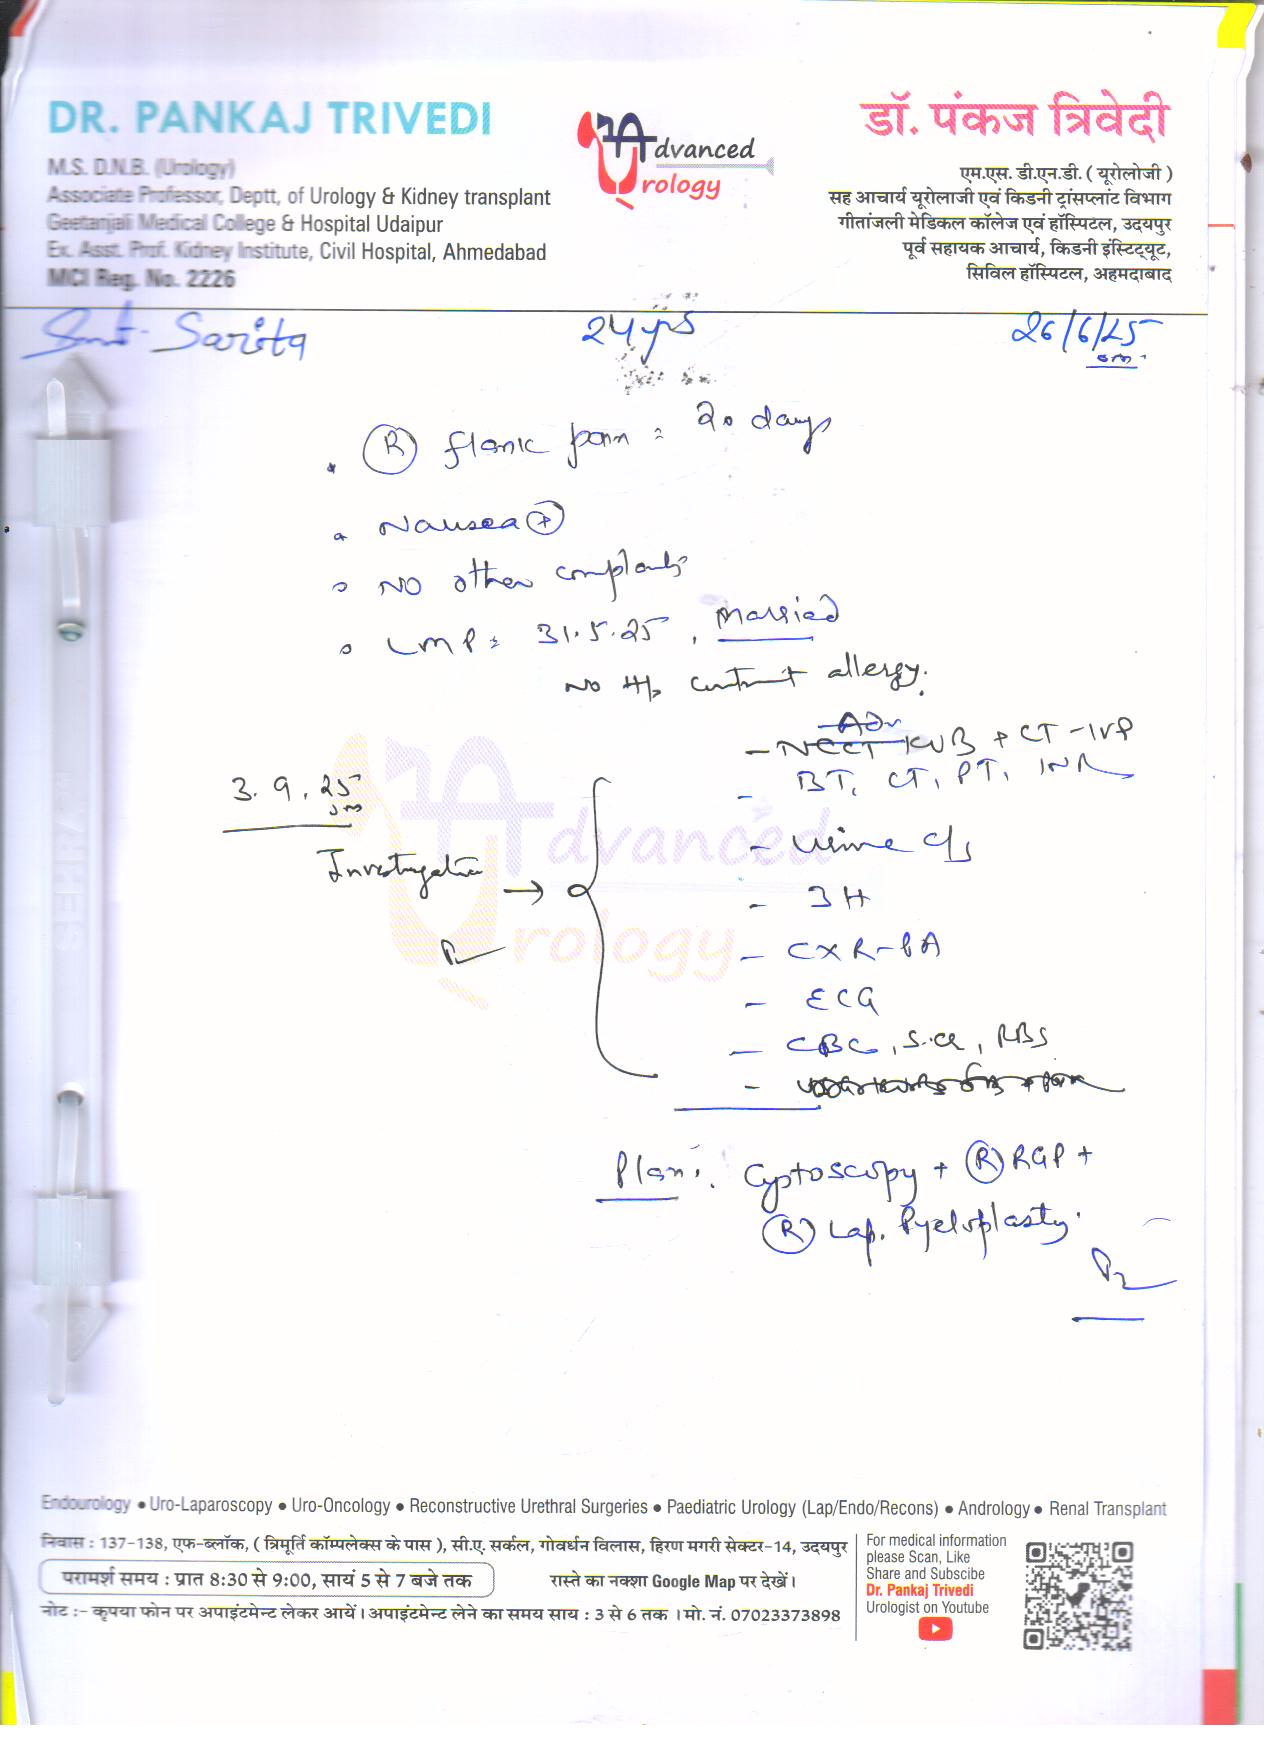 DR. PANKAJ TRIVEDI
M.S. D.N.B. (Urology)
Associate Professor, Deptt, of Urology & Kidney transplant
Geetanjali Medical College & Hospital Udaipur
Ex. Asst. Prof. Kidney Institute, Civil Hospital, Ahmedabad
MCI Reg. No. 2226
Advanced
Urology
डॉ. पंकज त्रिवेदी
एम.एस. डी.एन.डी. ( यूरोलोजी )
सह आचार्य यूरोलाजी एवं किडनी ट्रांसप्लांट विभाग
गीतांजली मेडिकल कॉलेज एवं हॉस्पिटल, उदयपुर
पूर्व सहायक आचार्य, किडनी इंस्टिट्यूट,
सिविल हॉस्पिटल, अहमदाबाद
Smt. Sarita 24 yrs 26/6/25
(R) flank pain = 20 days
Nausea (+)
NO other complaints
LMP = 31.5.25, Married
No H/o contrast allergy.
Adv
- NCCT KUB + CT-IVP
3.9.25
- BT, CT, PT, INR
- Urine c/s
Investigation →
- 3H
- CXR-PA
- ECG
- CBC, S.Cr, RBS
Plan: Cyptoscopy + (R) RGP +
(R) Lap. Pyeloplasty.
Advanced
Urology
Endourology ● Uro-Laparoscopy ● Uro-Oncology ● Reconstructive Urethral Surgeries ● Paediatric Urology (Lap/Endo/Recons) ● Andrology ● Renal Transplant
निवास : 137-138, एफ-ब्लॉक, ( त्रिमूर्ति कॉम्पलेक्स के पास ), सी.ए. सर्कल, गोवर्धन विलास, हिरण मगरी सेक्टर-14, उदयपुर
परामर्श समय : प्रात 8:30 से 9:00, सायं 5 से 7 बजे तक रास्ते का नक्शा Google Map पर देखें।
नोट :- कृपया फोन पर अपाइंटमेन्ट लेकर आयें। अपाइंटमेन्ट लेने का समय साय : 3 से 6 तक । मो. नं. 07023373898
For medical information
please Scan, Like
Share and Subscibe
Dr. Pankaj Trivedi
Urologist on Youtube